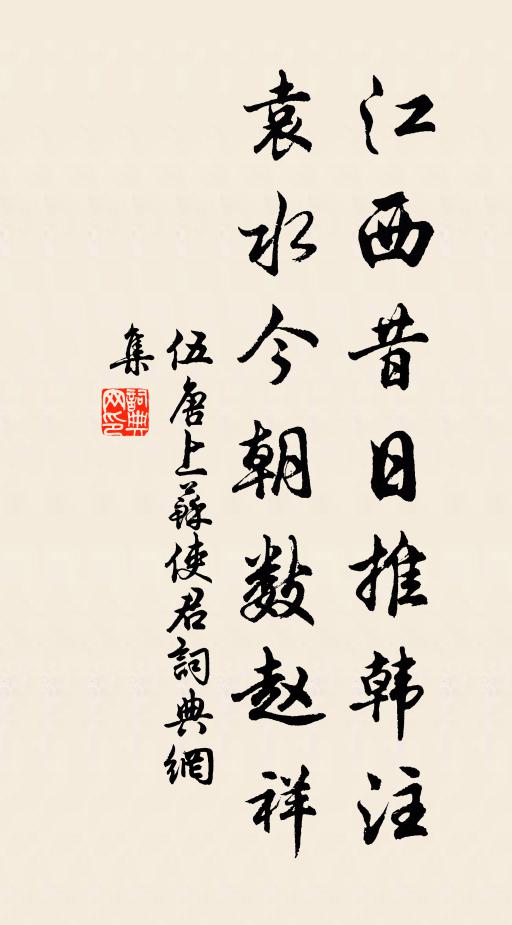 江西昔日推韩注
袁水今朝数赵祥
伍唐上蘇使君詞典網
集
詞典
网印